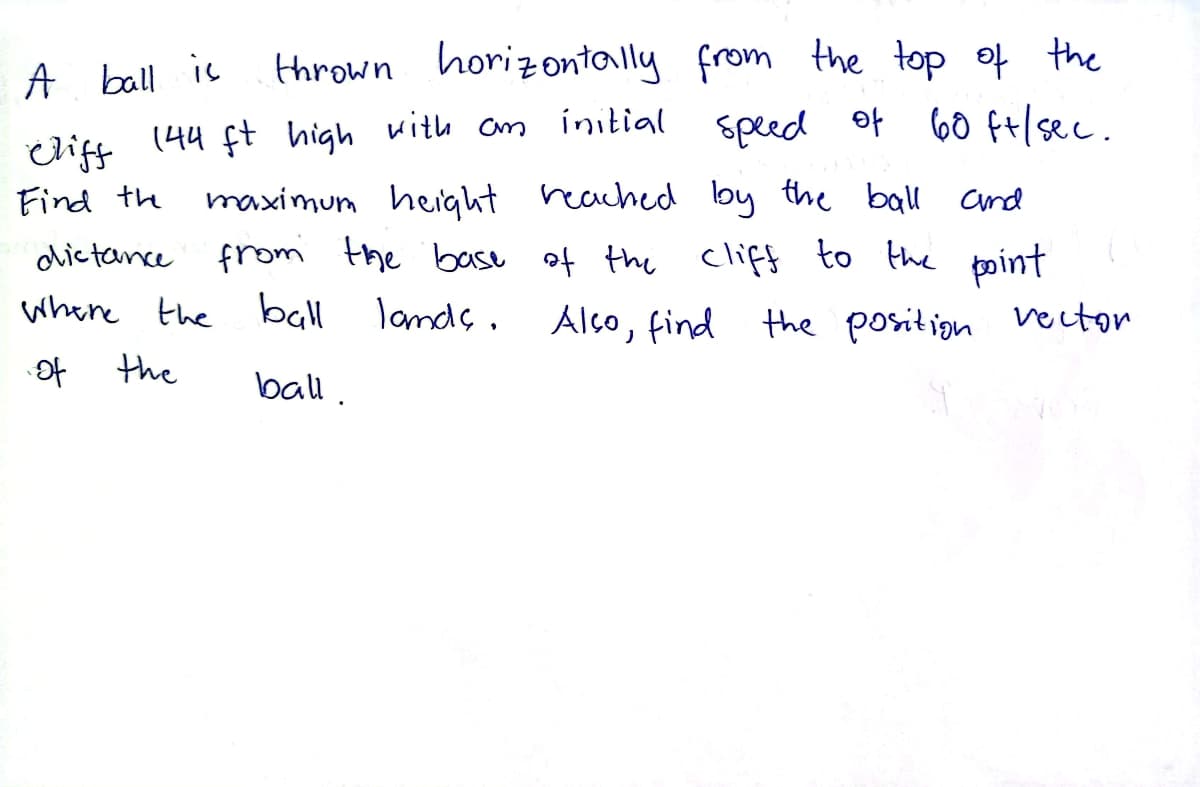 A ball is thrown horizontally from the top of the
cliff 144 ft high with an initial speed of 60 ft/sec.
Find the maximum height reached by the ball and
distance from the base of the cliff to the point
where the ball lands. Also, find the position vector
of the ball.